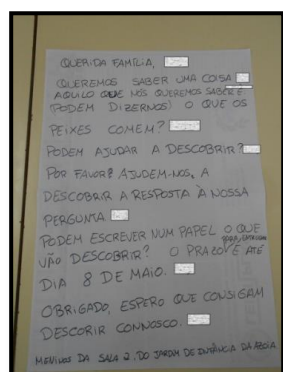 QUERIDA FAMÍLIA,
QUEREMOS SABER UMA COISA
AQUILO QUE NÓS QUEREMOS SABER É
(PODEM DIZERNOS) O QUE OS
PEIXES COMEM?
PODEM AJUDAR A DESCOBRIR?
POR FAVOR? AJUDEM-NOS, A
DESCOBRIR A RESPOSTA À NOSSA
PERGUNTA
PODEM ESCREVER NUM PAPEL O QUE
VÃO DESCOBRIR? O PRAZO É ATÉ
DIA 8 DE MAIO.
OBRIGADO, ESPERO QUE CONSIGAM
DESCORIR CONNOSCO.
MENINOS DA SALA 2 DO JARDIM DE INFÂNCIA DA